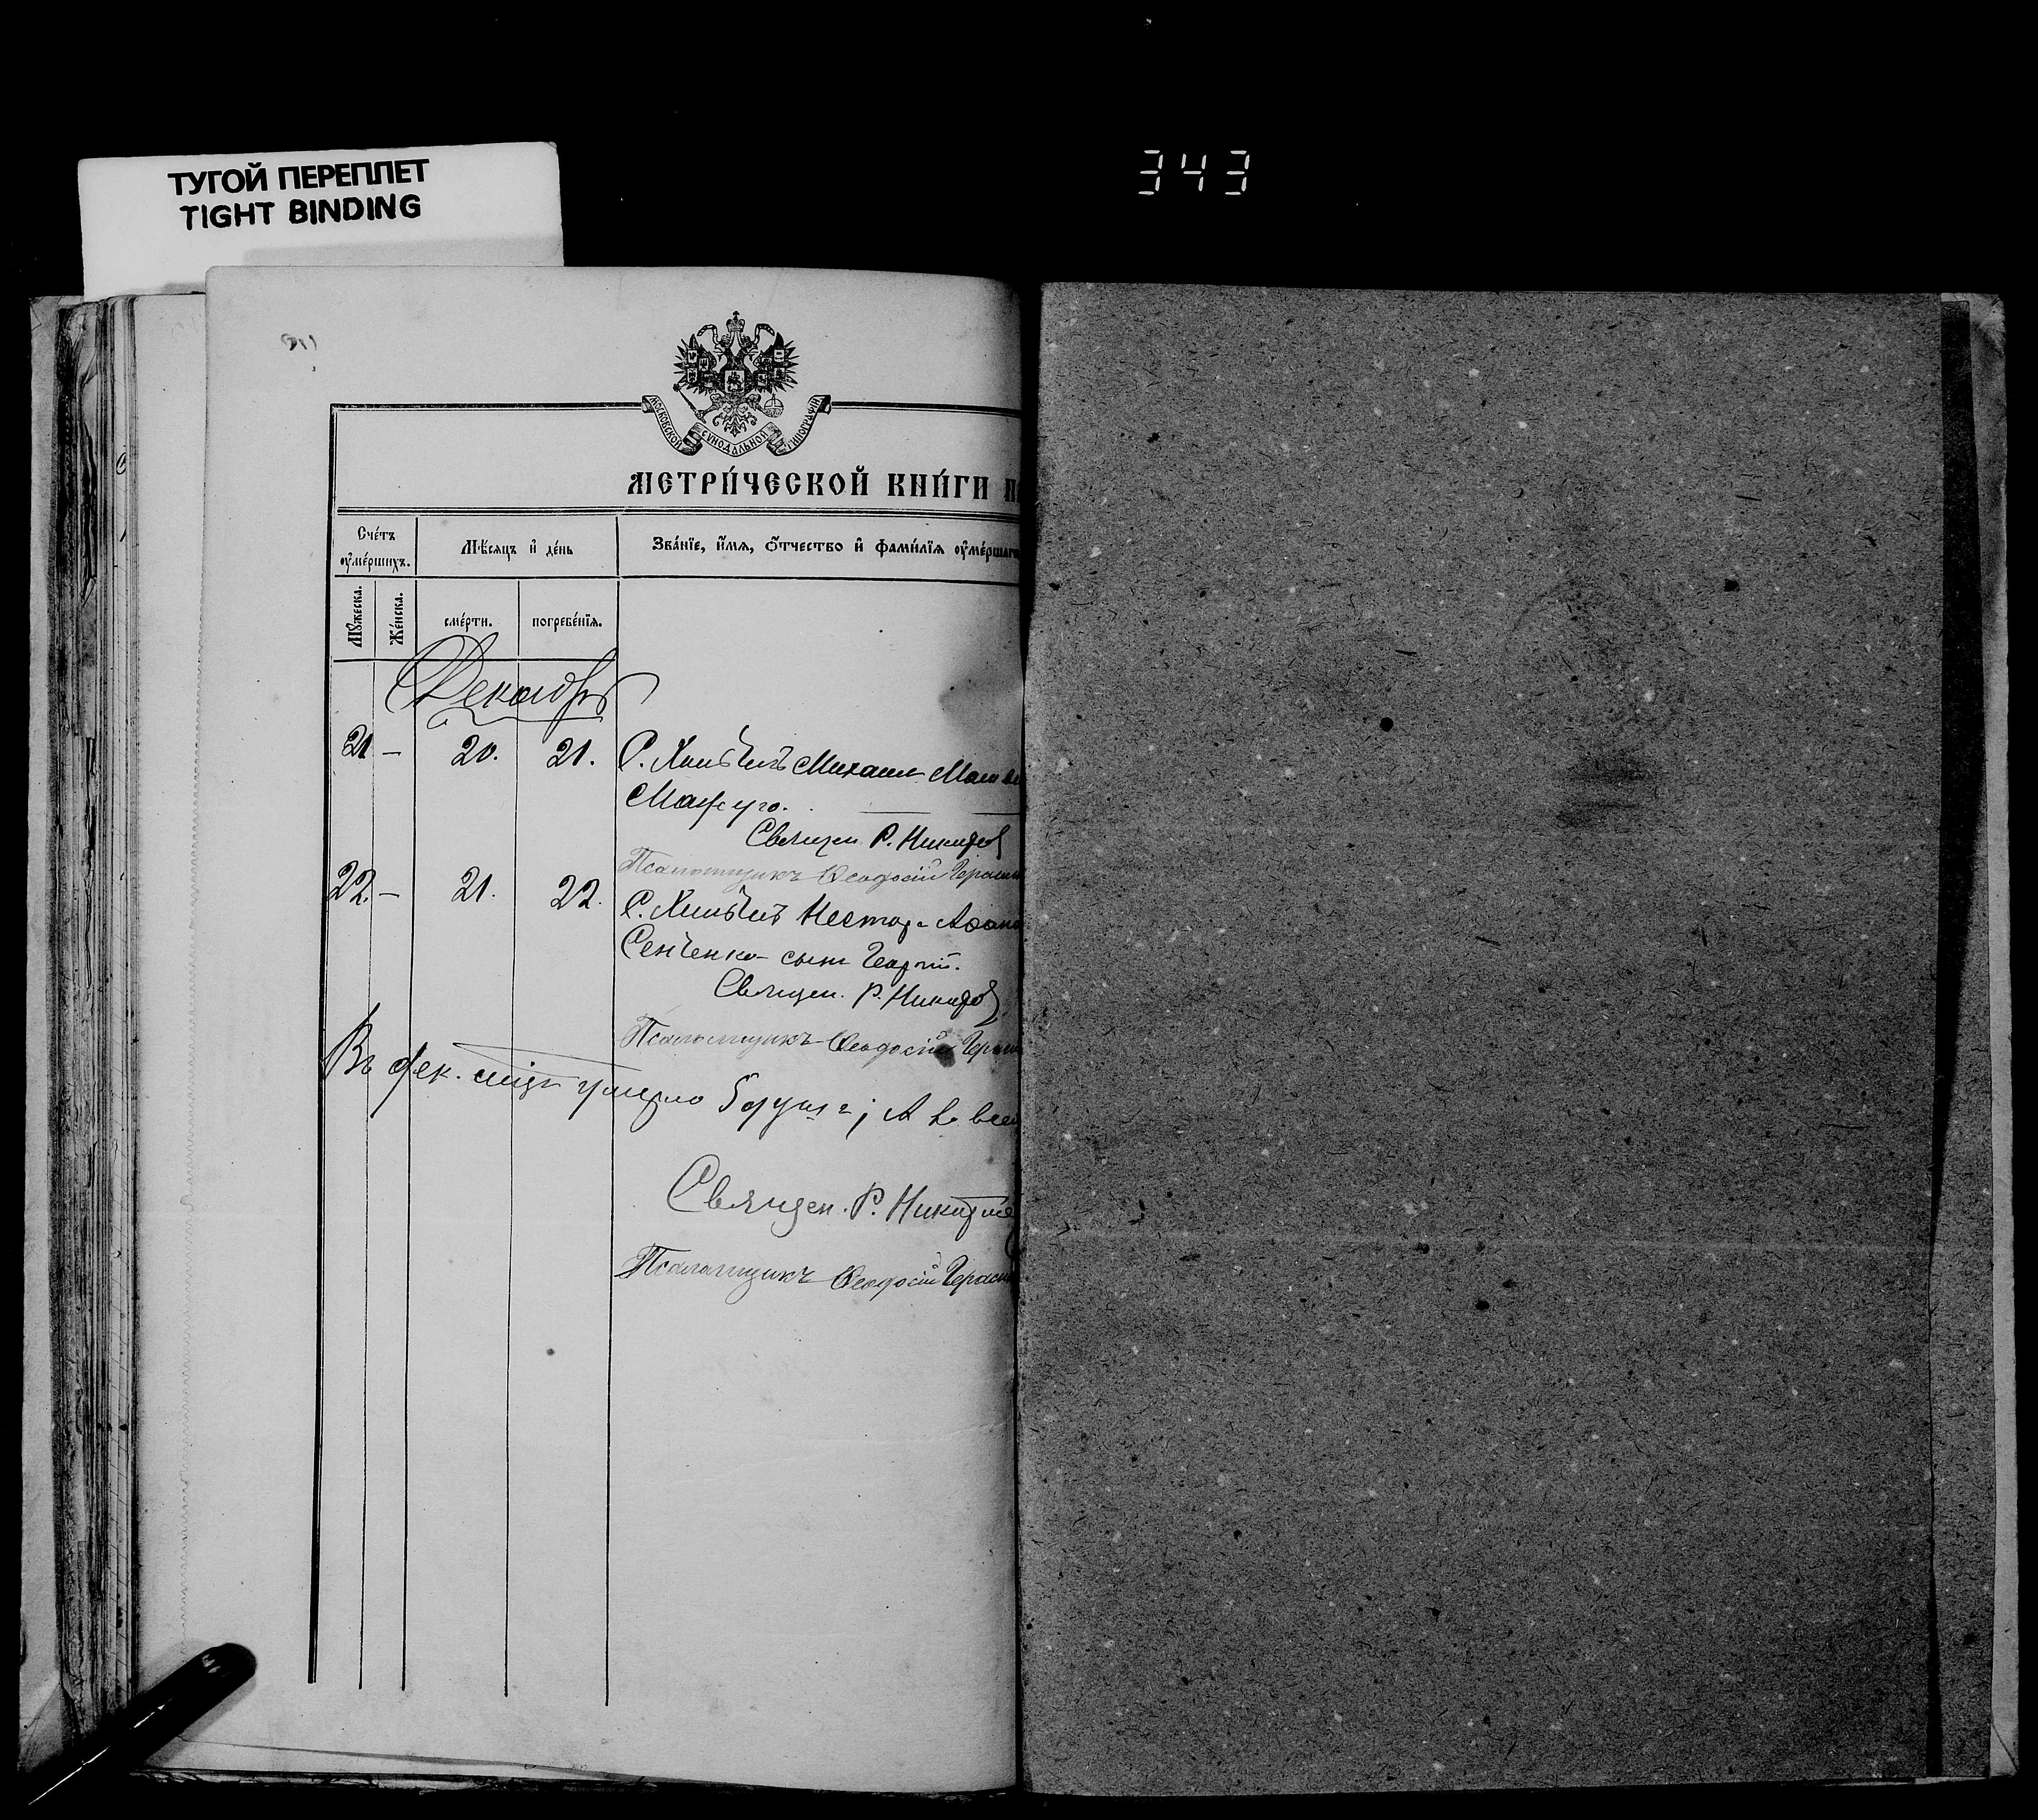 ТУГОЙ ПЕРЕПЛЕТ
TIGHT BINDING
343
МОСКОВСКОЙ СѴНОДАЛЬНОЙ ТИПОГРАФІИ
МЕТРИ́ЧЕСКОЙ КНИ́ГИ
Сче́тъ оу҆ме́ршихъ.
Мѣ́сяцъ и҆ де́нь
Зва́нїе, и҆́мѧ, ѻ҆́тчество и҆ фами́лїѧ оу҆ме́ршаго
Мꙋ́жеска.
Же́нска.
сме́рти.
погребе́нїѧ.
Декабрь
21 — 20. 21. Михаил
Священ. Р. Никифо
Псаломщикъ Ѳеодосій Герасим
22. — 21. 22. Нестор Афана
Сенченко сынъ Георгій.
Священ. Р. Никифо
Псаломщикъ Ѳеодосій Герасим
Въ дек. мцѣ умерло 5 душъ; А во все
Священ. Р. Никифо
Псаломщикъ Ѳеодосій Герасим